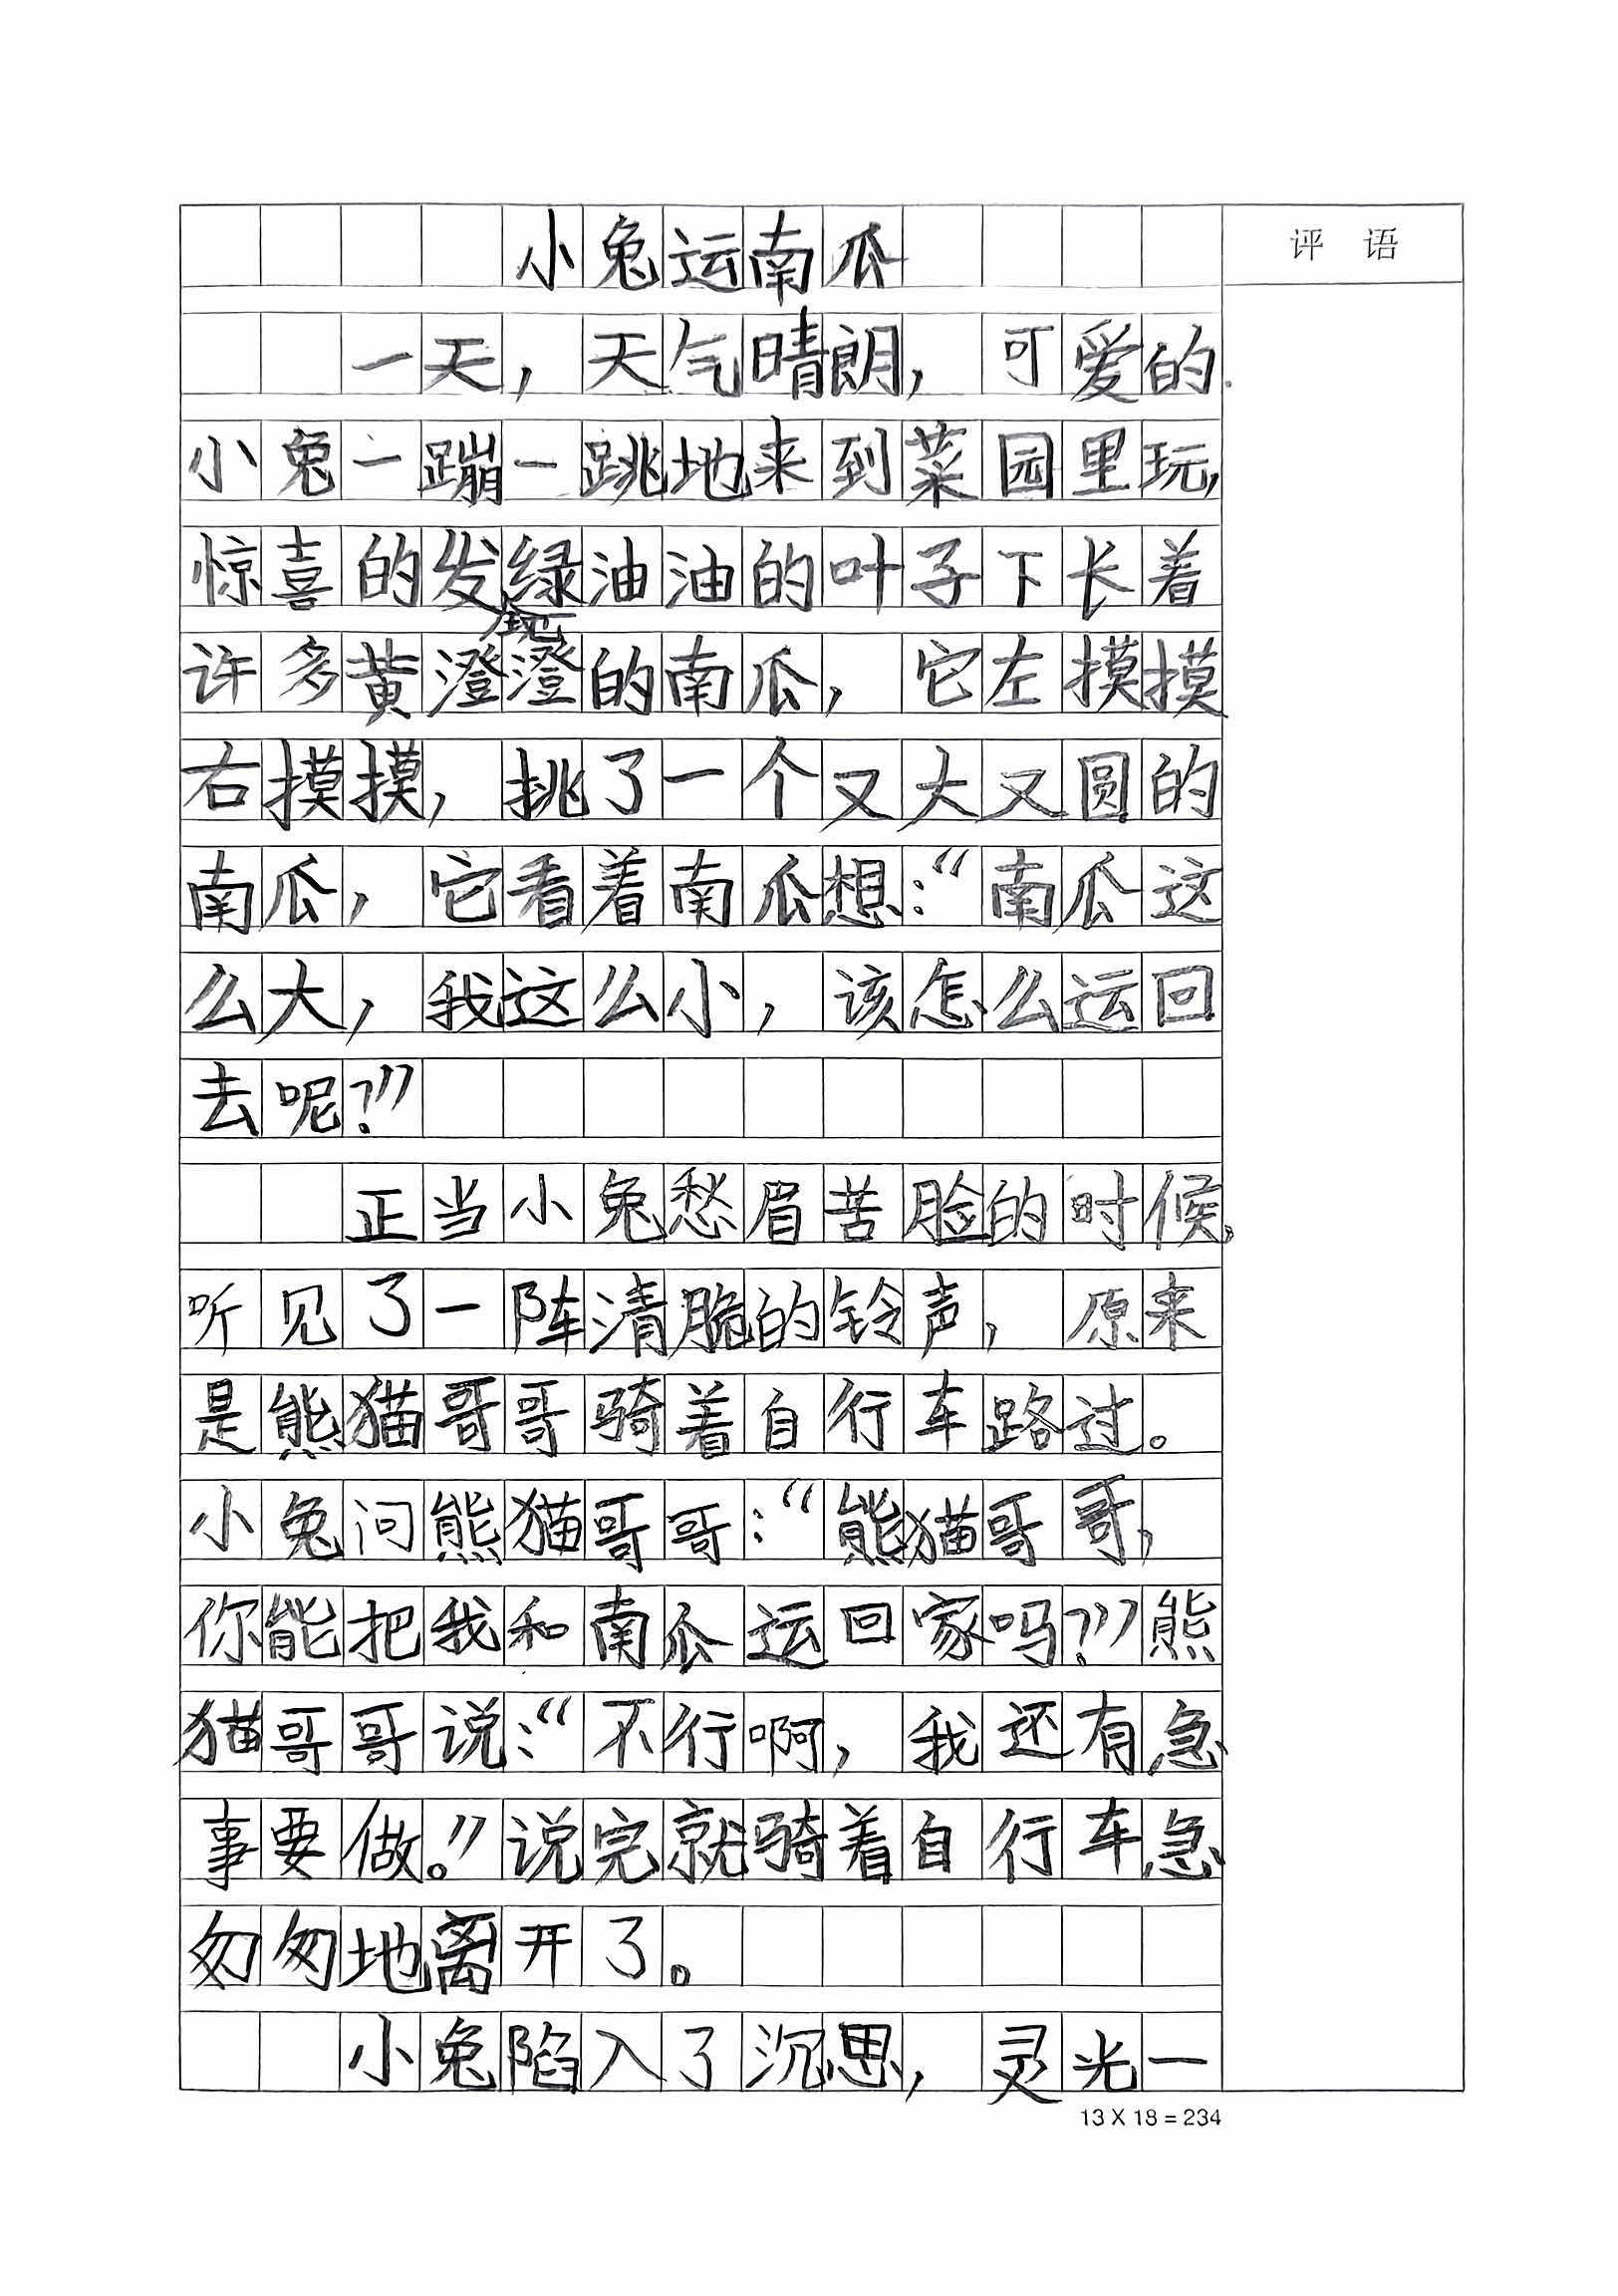 小兔运南瓜
评 语
一天，天气晴朗，可爱的
小兔一蹦一跳地来到菜园里玩，
惊喜的发现绿油油的叶子下长着
许多黄澄澄的南瓜，它左摸摸
右摸摸，挑了一个又大又圆的
南瓜，它看着南瓜想：“南瓜这
么大，我这么小，该怎么运回
去呢？”
正当小兔愁眉苦脸的时候，
听见了一阵清脆的铃声，原来
是熊猫哥哥骑着自行车路过。
小兔问熊猫哥哥：“熊猫哥哥，
你能把我和南瓜运回家吗？”熊
猫哥哥说：“不行啊，我还有急
事要做。”说完就骑着自行车急
匆匆地离开了。
小兔陷入了沉思，灵光一
13 X 18 = 234